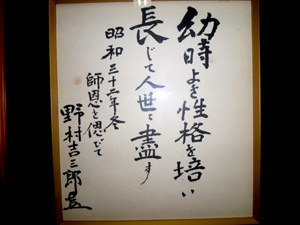 幼時よき性格を培い
長じて人世に盡す
昭和三十二年冬
師恩を偲びて
野村吉三郎